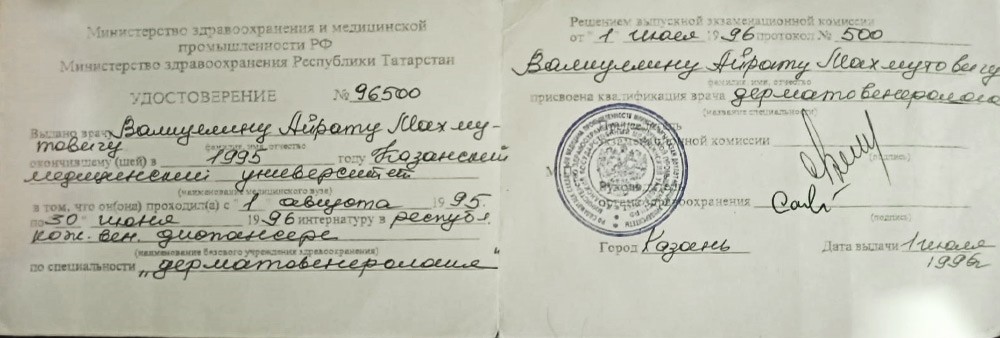 Министерство здравоохранения и медицинской
промышленности РФ
Министерство здравоохранения Республики Татарстан
УДОСТОВЕРЕНИЕ №96500
Выдано врачу Валиуллину Айрату Махму-
товичу
фамилия, имя, отчество
окончившему (шей) в 1995 году Казанский
медицинский университет
(наименование медицинского вуза)
в том, что он(она) проходил(а) с "1" августа 1995.
по "30" июня 1996 интернатуру в республ.
кож. вен. диспансере
(наименование базового учреждения здравоохранения)
по специальности „дерматовенерология"
Решением выпускной экзаменационной комиссии
от "1" июля 1996 протокол № 500
Валиуллину Айрату Махмутовичу
фамилия, имя, отчество
присвоена квалификация врача дерматовенеролога
(название специальности)
экзаменационной комиссии
(подпись)
Руководитель
органа здравоохранения
(подпись)
Город Казань Дата выдачи 1 июля
1996г